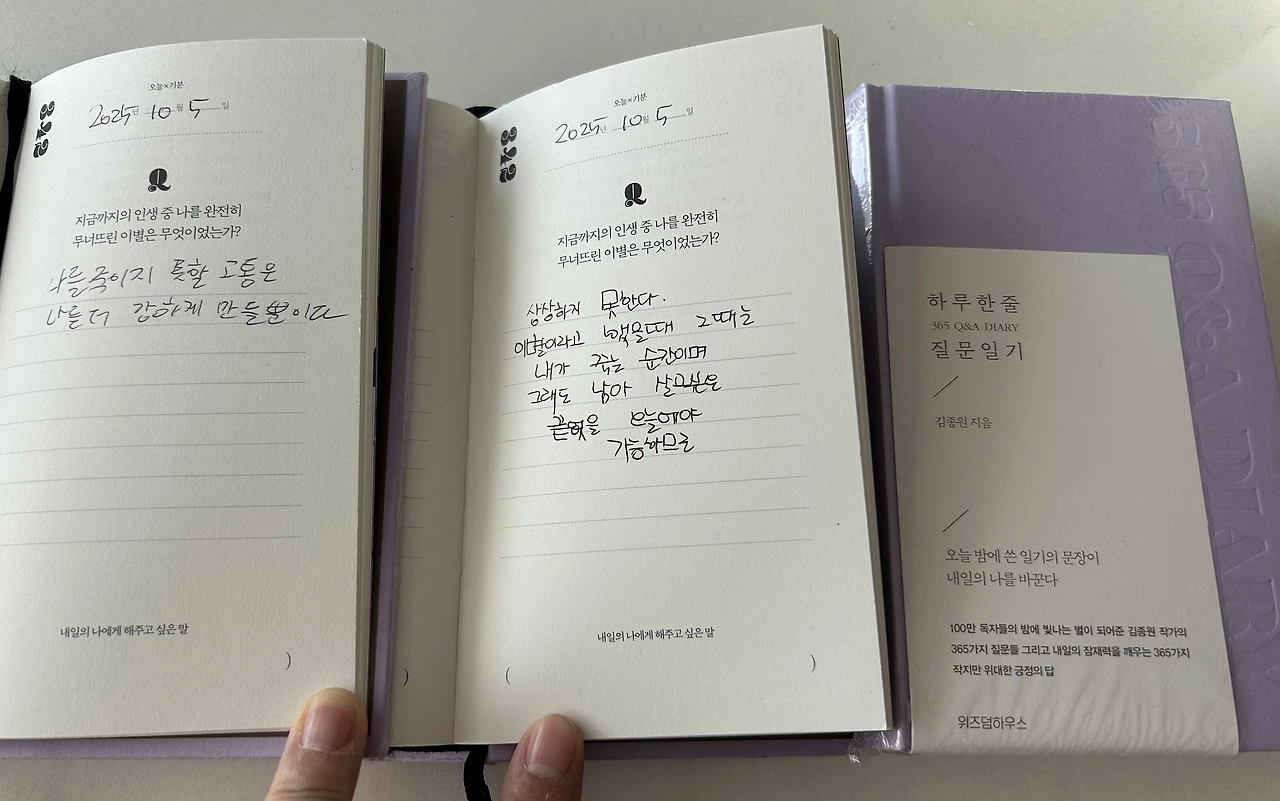 오늘×기분
2025년 10월 5일
342
Q
지금까지의 인생 중 나를 완전히
무너뜨린 이별은 무엇이었는가?
나를 죽이지 못할 고통은
나를 더 강하게 만들 뿐이다
내일의 나에게 해주고 싶은 말
)
)
오늘×기분
2025년 10월 5일
342
Q
지금까지의 인생 중 나를 완전히
무너뜨린 이별은 무엇이었는가?
상상하지 못한다.
이별이라고 했을때 그때는
내가 죽는 순간이며
그래도 남아
끝없을 오늘에야
가능하므로
내일의 나에게 해주고 싶은 말
( )
365 Q&A DIARY
하루 한 줄
365 Q&A DIARY
질문 일기
김종원 지음
오늘 밤에 쓴 일기의 문장이
내일의 나를 바꾼다
100만 독자들의 밤에 빛나는 별이 되어준 김종원 작가의
365가지 질문들 그리고 내일의 잠재력을 깨우는 365가지
작지만 위대한 긍정의 답
위즈덤하우스